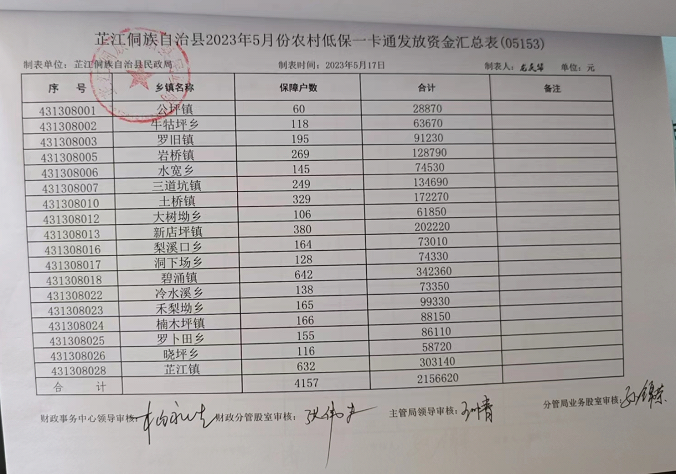 芷江侗族自治县2023年5月份农村低保一卡通发放资金汇总表(05153)
制表单位：芷江侗族自治县民政局 制表时间：2023年5月17日 制表人： 单位：元
序 号 乡镇名称 保障户数 合计 备注
431308001 公坪镇 60 28870
431308002 牛牯坪乡 118 63670
431308003 罗旧镇 195 91230
431308005 岩桥镇 269 128790
431308006 水宽乡 145 74530
431308007 三道坑镇 249 134690
431308010 土桥镇 329 172270
431308012 大树坳乡 106 61850
431308013 新店坪镇 380 202220
431308016 梨溪口乡 164 73010
431308017 洞下场乡 128 74330
431308018 碧涌镇 642 342360
431308022 冷水溪乡 138 73350
431308023 禾梨坳乡 165 99330
431308024 楠木坪镇 166 88150
431308025 罗卜田乡 155 86110
431308026 晓坪乡 116 58720
431308028 芷江镇 632 303140
合 计 4157 2156620
财政事务中心领导审核： 财政分管股室审核： 主管局领导审核： 分管局业务股室审核：